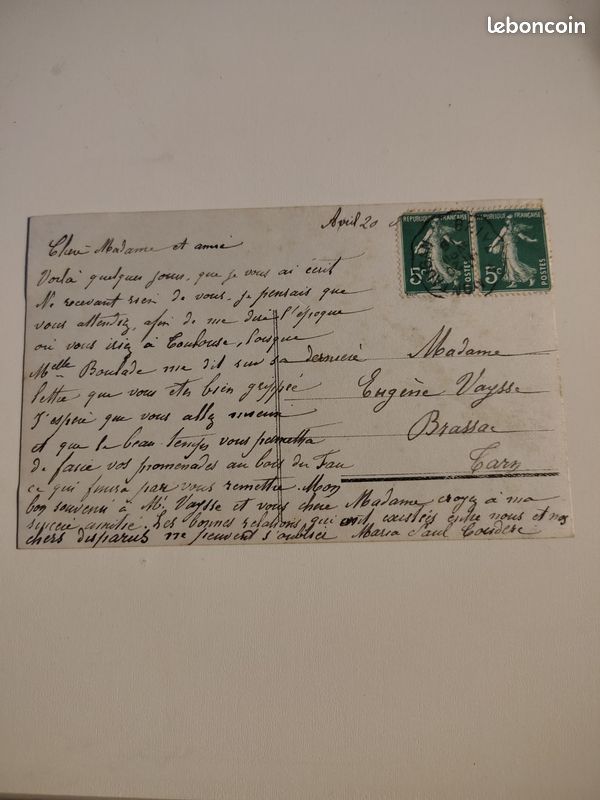 leboncoin
Avril 20
REPUBLIQUE FRANÇAISE
REPUBLIQUE FRANÇAISE
5c POSTES
5c POSTES
Chère Madame et amie
Voilà quelques jours, que je vous ai écrit
Ne recevant rien de vous, je pensais que
vous attendez, afin de me dire l'époque
où vous iriez à Toulouse, lorsque
Melle Boulade me dit sur sa dernière
lettre que vous êtes bien grippée
J'espère que vous allez mieux
et que le beau temps vous permettra
de faire vos promenades au bois du Fau
ce qui finira par vous remettre. Mon
bon souvenir à Mr Vaysse et vous chère Madame, croyez à ma
sincère amitié. Les bonnes relations qui ont existées entre nous et nos
chers disparus ne peuvent s'oublier Maria Paul Couderc
Madame
Eugène Vaysse
Brassac
Tarn